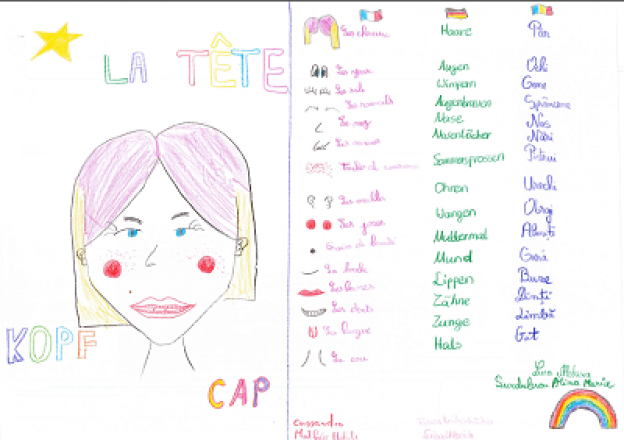 LA TÊTE
KOPF
CAP
Les cheveux
Les yeux
Les cils
Les sourcils
Le nez
Les
Taches de
Les oreilles
Les joues
Grain de beauté
La bouche
Les lèvres
Les dents
La langue
Le cou
Haare
Augen
Wimpern
Augenbrauen
Nase
Nasenlöcher
Sommersprossen
Ohren
Wangen
Muttermal
Mund
Lippen
Zähne
Zunge
Hals
Păr
Ochi
Gene
Sprâncene
Nas
Nări
Pistrui
Urechi
Obraji
Aluniță
Gură
Buze
Dinți
Limbă
Gât
Alina Maria
Cassandra